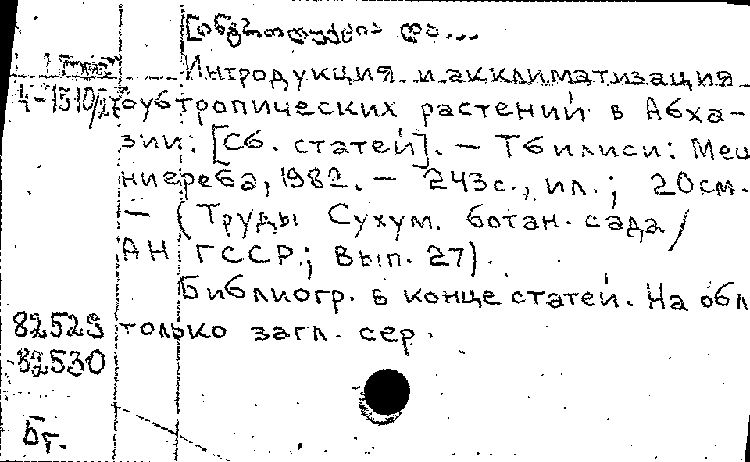 [ინტროდუქცია და...
Интродукция и акклиматизация
4-1510/27 субтропических растений в Абха-
зии: [Сб. статей]. — Тбилиси: Мец
ниереба, 1982. — 243с., ил.; 20см.
— (Труды Сухум. ботан. сада /
АН ГССР.; Вып. 27).
Библиогр. в конце статей. На обл
82529 только загл. сер.
82530
Бт.